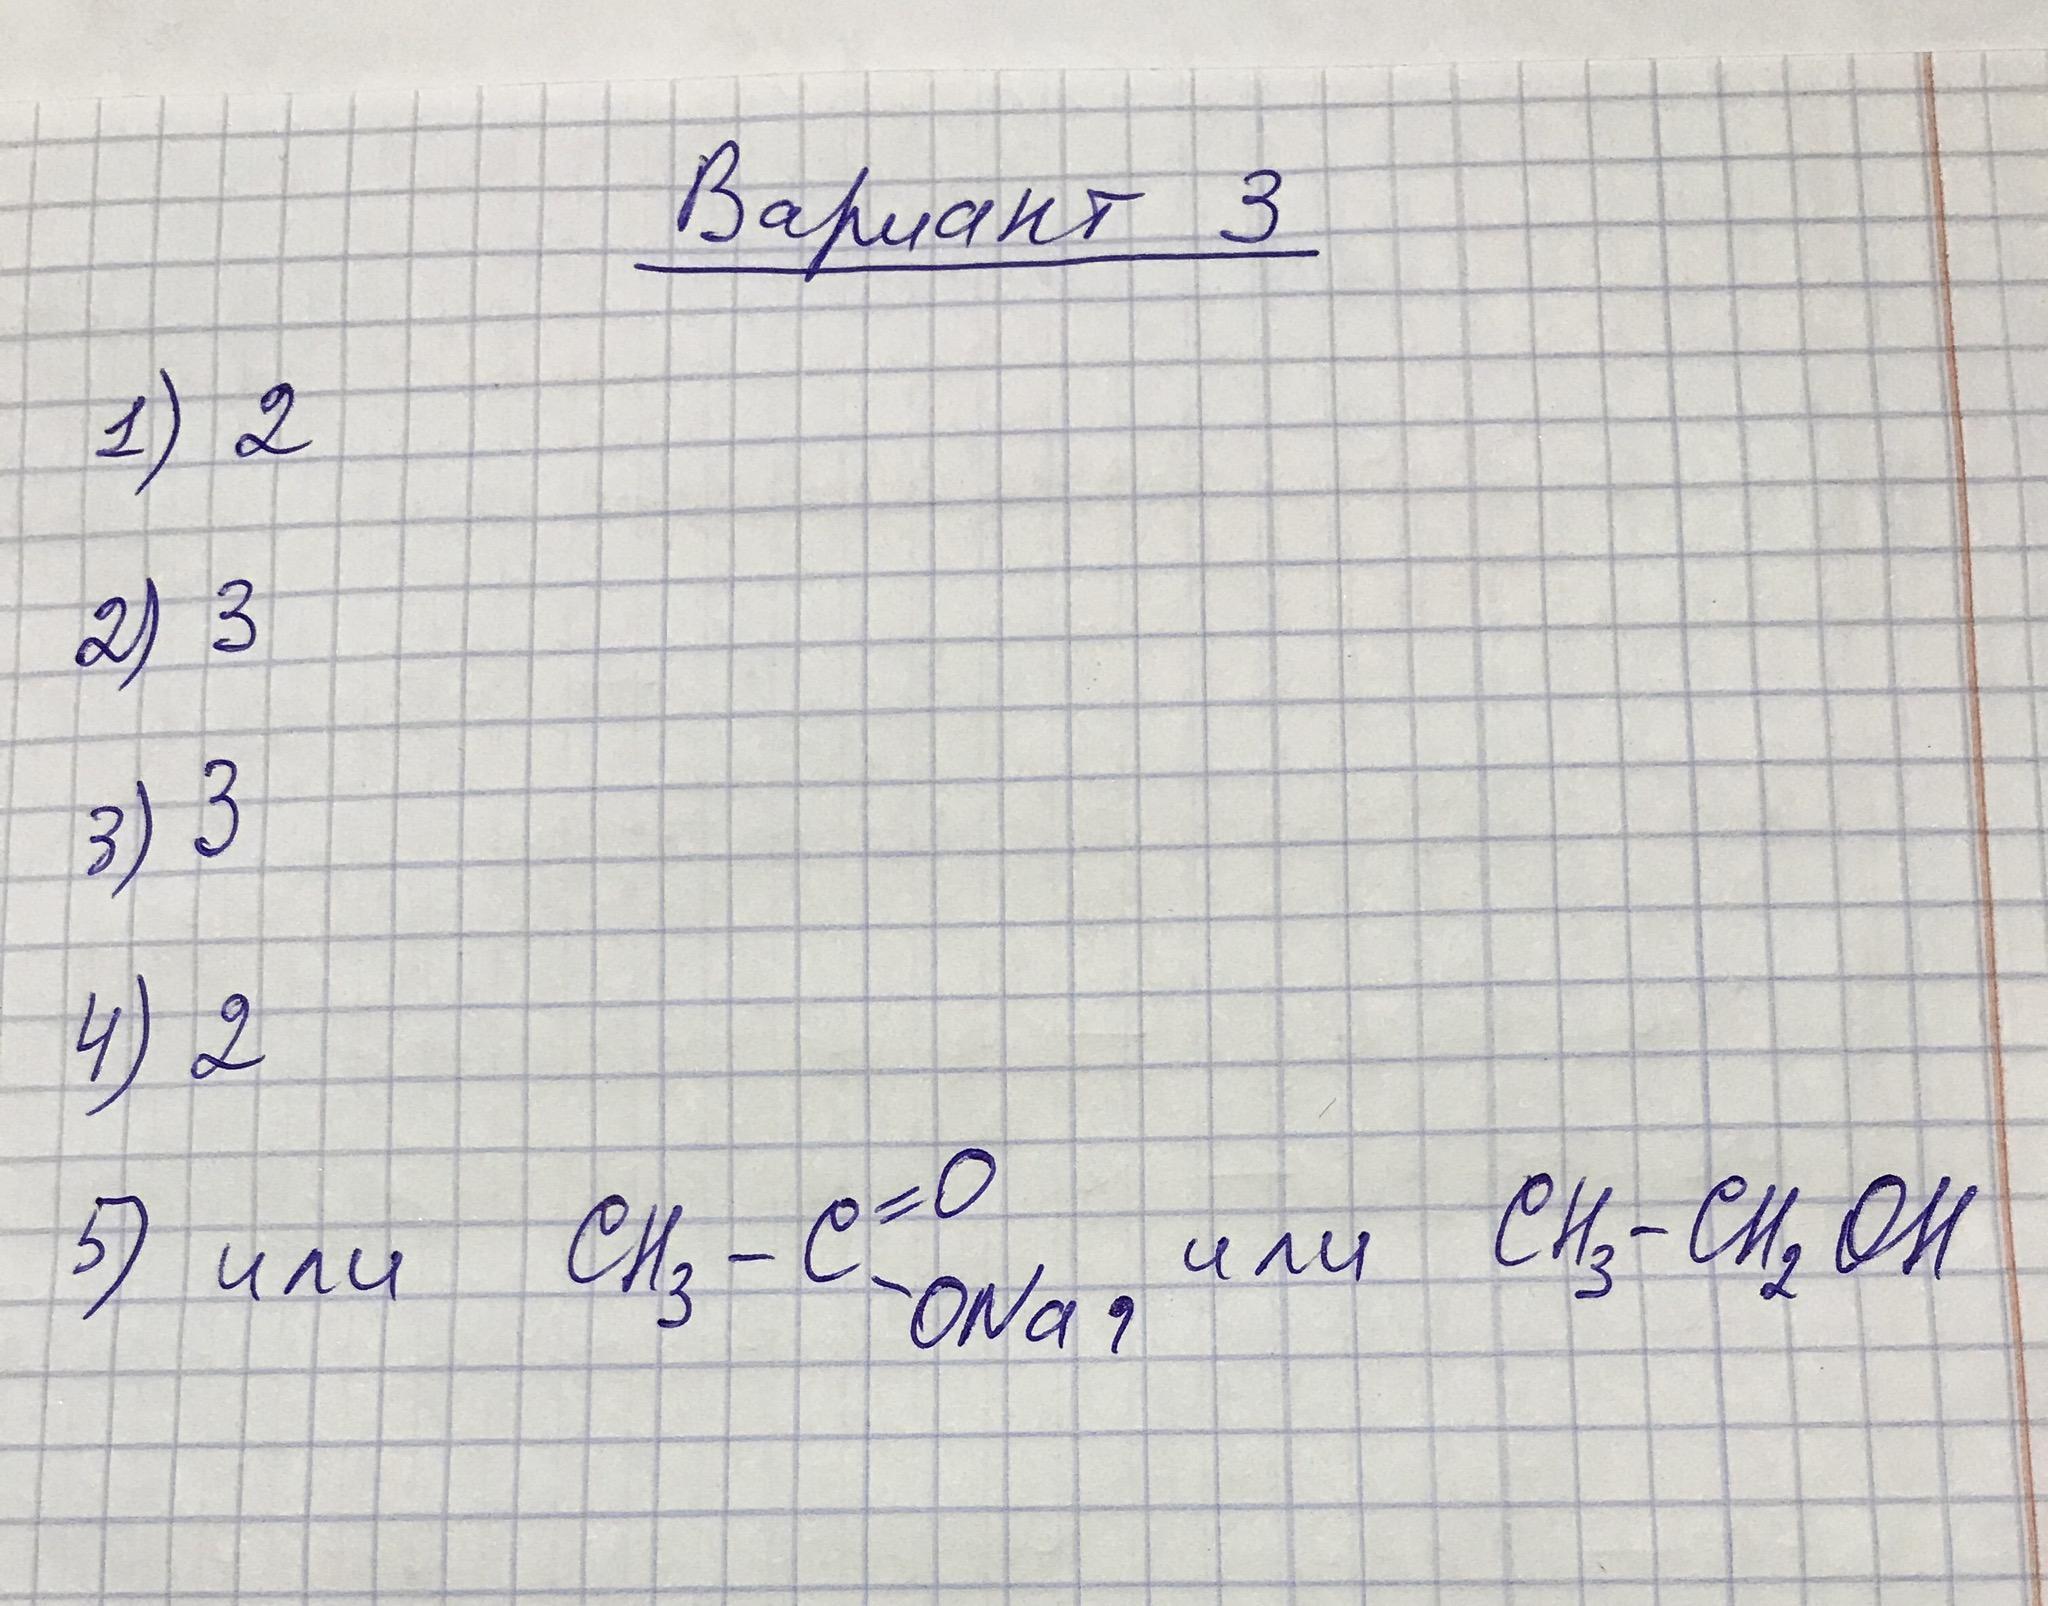 Вариант 3
1) 2
2) 3
3) 3
4) 2
5) или CH₃-C=O-ONa, или CH₃-CH₂OH